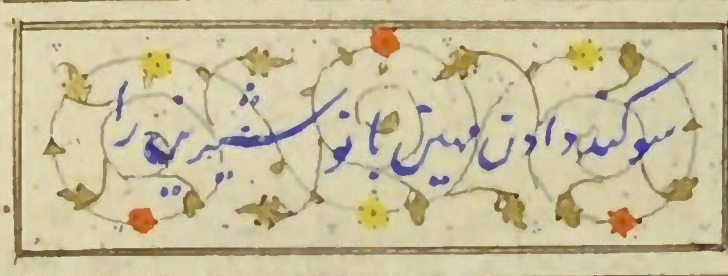 سوکند دادن مهین بانو شیرین را